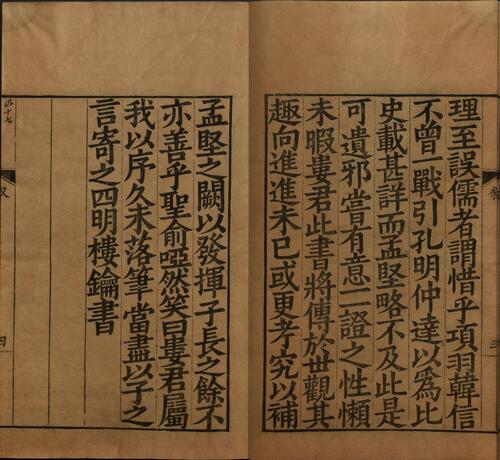 理至誤儒者謂惜乎項羽韓信
不曾一戰引孔明仲達以爲比
史載甚詳而孟堅略不及此是
可遺邪嘗有意一二證之性懶
未暇婁君此書將傳於世觀其
趣向進進未已或更考究以補
孟堅之闕以發揮子長之餘不
亦善乎聖俞啞然笑曰婁君屬
我以序久未落筆當盡以子之
言寄之四明樓鑰書